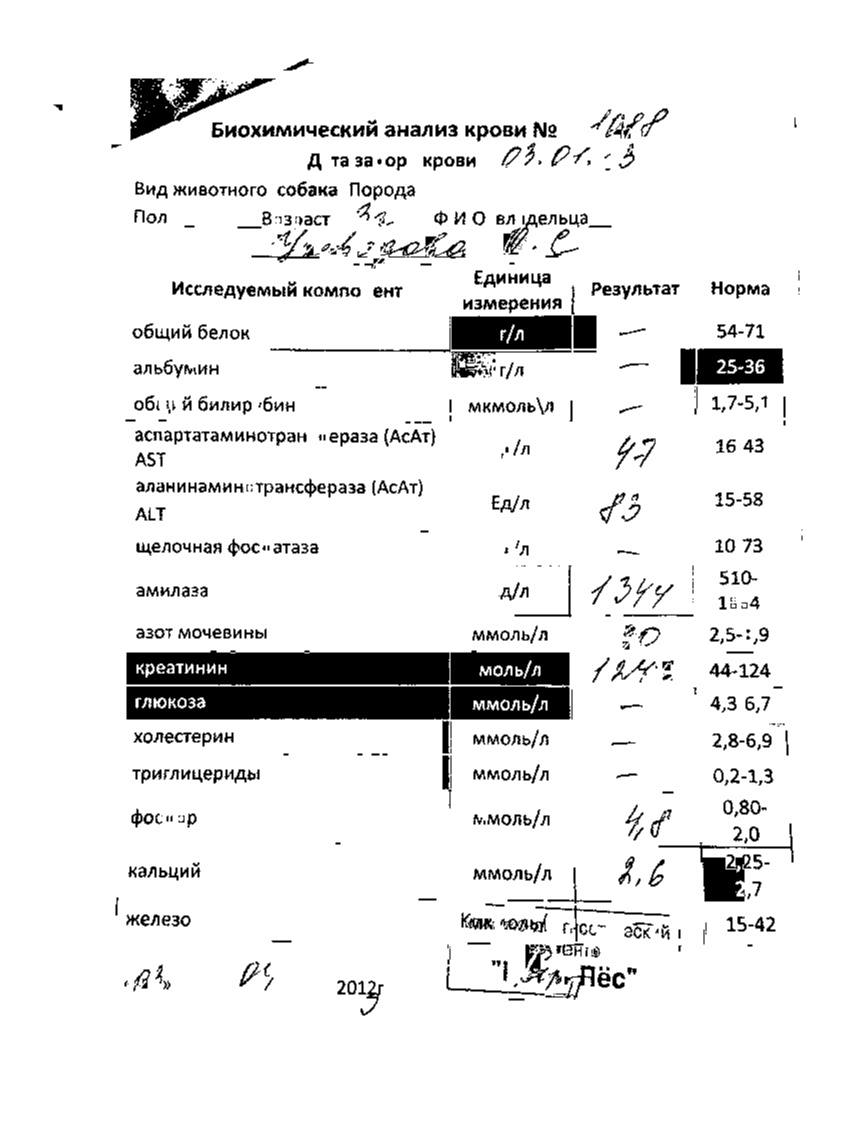 Биохимический анализ крови № 1088
крови 03.01.13
Вид животного собака Порода
Пол Возраст 3г Ф И О владельца
Исследуемый компонент Единица измерения Результат Норма
общий белок г/л — 54-71
альбумин г/л — 25-36
общий билирубин мкмоль\л — 1,7-5,1
аспартатаминотрансфераза (АсАт) AST /л 47 16 43
аланинаминотрансфераза (АсАт) ALT Ед/л 83 15-58
щелочная фосфатаза /л — 10 73
амилаза д/л 1344 510-
азот мочевины ммоль/л 2,5-
креатинин моль/л 44-124
глюкоза ммоль/л — 4,3 6,7
холестерин ммоль/л — 2,8-6,9
триглицериды ммоль/л — 0,2-1,3
фосфор ммоль/л 4,8 0,80-2,0
кальций ммоль/л 2,6 2,25-2,7
железо 15-42
"03" 01 2012г
Пёс"